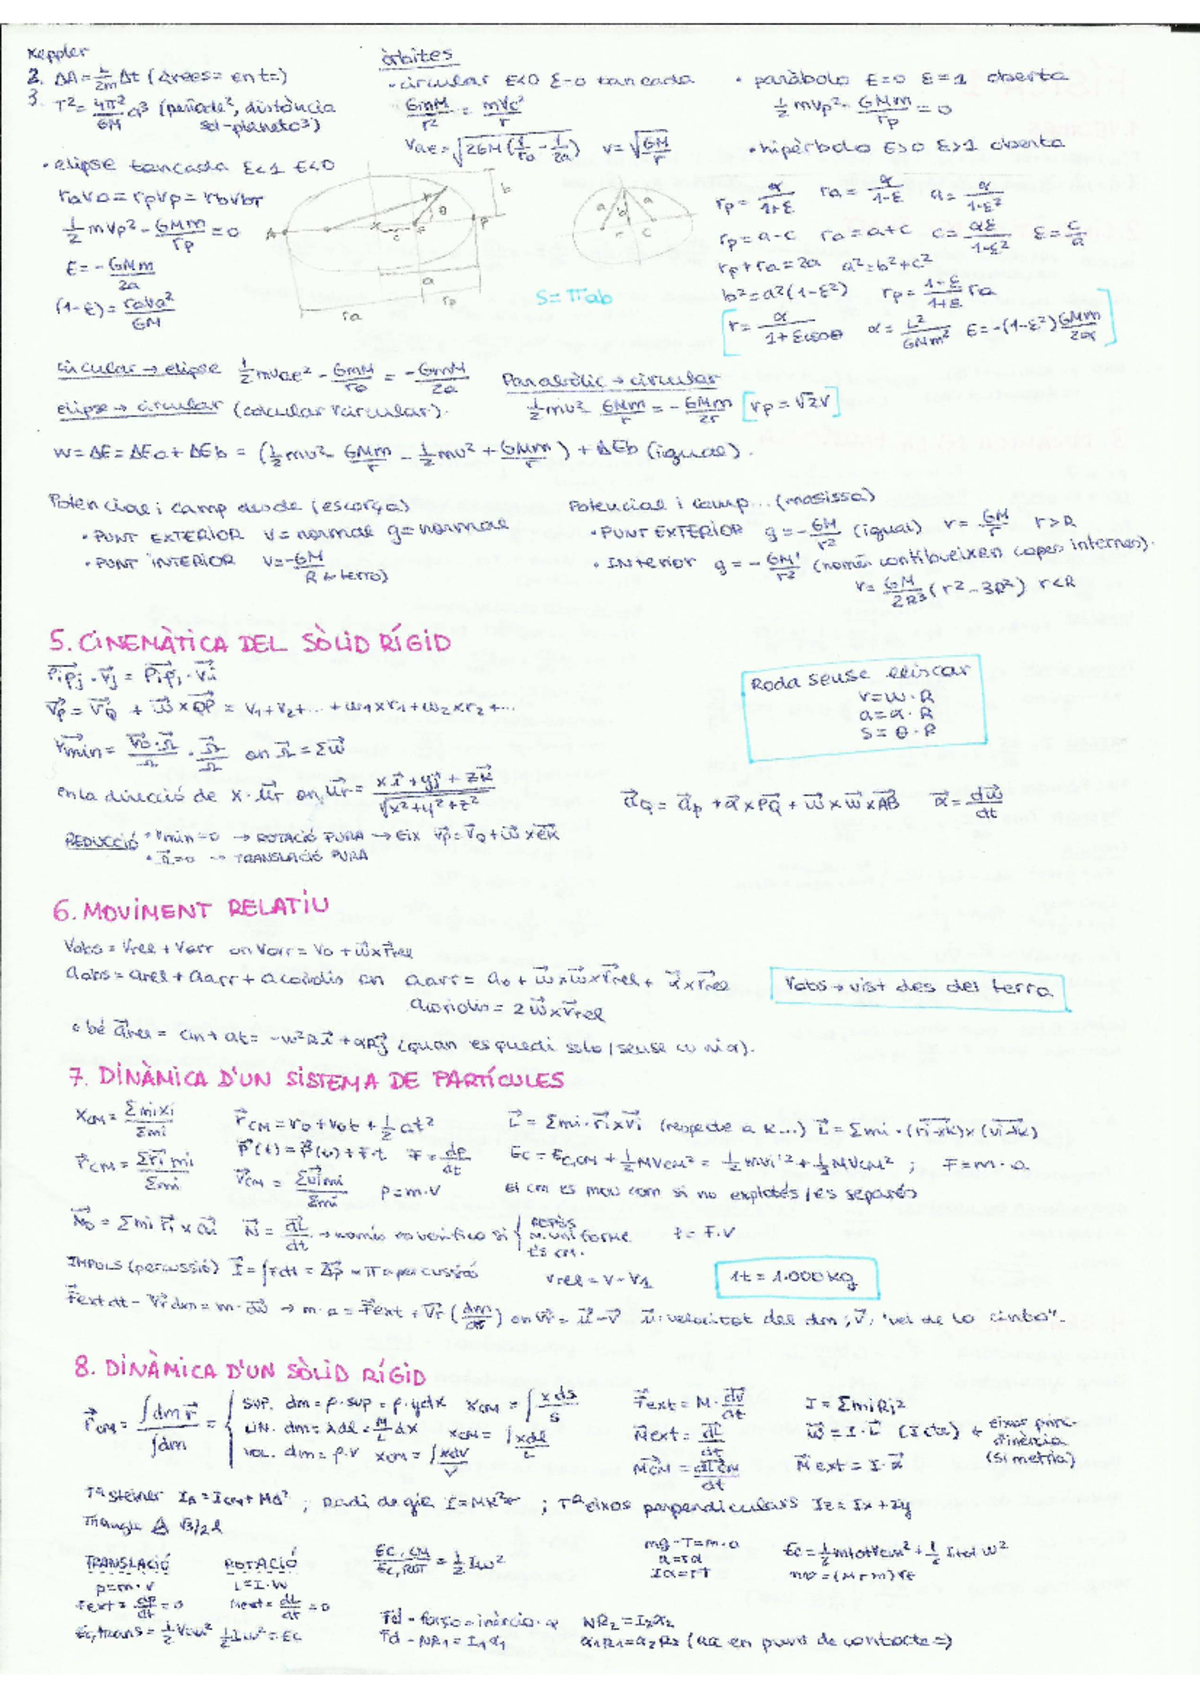 Keppler
2. ΔA = L/2m Δt (Àrees = en t=)
3. T² = 4π²/GM a³ (període², distància sol-planeta³)
òrbites
· circular E<0 ε=0 tancada
GmM/r² = mvc²/r
vae = √(2GM(1/ra - 1/2a)) v = √(GM/r)
· paràbola E=0 ε=1 oberta
1/2 mvp² - GMm/rp = 0
· hipèrbola E>0 ε>1 oberta
· elipse tancada ε<1 E<0
rava = rpvp = rbvbr
1/2 mvp² - GMm/rp = 0
E = - GMm/2a
(1-ε) = rava²/GM
A
x
c
F
θ
r
P
b
a
rp
ra
a
b
a
r
c
S = πab
rp = α/1+ε ra = α/1-ε a = α/1-ε²
rp = a-c ra = a+c c = αε/1-ε² ε = c/a
rp+ra = 2a a² = b²+c²
b² = a²(1-ε²) rp = 1-ε/1+ε ra
[r = α/1+εcosθ α = L²/GMm² E = -(1-ε²) GMm/2α]
circular → elipse 1/2 mvae² - GmM/ra = - GmM/2a
Parabòlic → circular
elipse → circular (calcular vcircular).
1/2 mv² - GMm/r = - GMm/2r [vp = √2v]
W = ΔE = ΔEa + ΔEb = (1/2 mv² - GMm/r - 1/2 mv² + GMm/r) + ΔEb (igual).
Potencial i camp desde (escorça)
· PUNT EXTERIOR V = normal g = normal
· PUNT INTERIOR V = -GM/R (←terra)
Potencial i camp... (masissa)
· PUNT EXTERIOR g = - GM/r² (igual) v = GM/r r>R
· INterior g = - GM'/r² (només contribueixen capes internes).
v = GM/2R³ (r² - 3R²) r<R
5. CINEMÀTICA DEL SÒLID RÍGID
PiPj · vj = PiPj · vi
vp = vQ + w × QP = v1 + v2 + ... + w1×r1 + w2×r2 + ...
vmin = vo·Ω/Ω · Ω/Ω on Ω = Σw
en la direcció de x · ur on ur = xi + yj + zk/√x²+y²+z²
REDUCCIÓ · vmin = 0 → ROTACIÓ PURA → EIX vp = vQ + w × ek
· Ω = 0 → TRANSLACIÓ PURA
Roda sense lliscar
v = w · R
a = α · R
s = θ · R
aQ = ap + α × PQ + w × w × AB α = dw/dt
6. MOVIMENT RELATIU
vabs = vrel + varr on varr = vo + w×rrel
aabs = arel + aarr + acoriolis on aarr = ao + w×w×rrel + α×rrel
acoriolis = 2w×vrel
vabs → vist des del terra
o bé arel = an + at = -w²Ri + αRj (quan es quedi sola / sense w ni α).
7. DINÀMICA D'UN SISTEMA DE PARTÍCULES
xCM = Σmixi/Σmi
rCM = ro + vot + 1/2 at²
L = Σmi·ri×vi (respecte a k...) L = Σmi·(ri-rk)×(vi-vk)
rCM = Σrimi/Σmi
P(t) = P(0) + F·t F = dp/dt
Ec = Ec,CM + 1/2 MVCM² = 1/2 mvi'² + 1/2 MVCM² ; F = m·a
vCM = Σvimi/Σmi p = m·v
el cm es mou com si no explotés / es separés
No = Σmi ri × ai N = dL/dt → només es verifica si { REPÒS M. UNIFORME és CM.
t = F·v
IMPULS (percussió) I = ∫Fdt = Δp = π = percussió
vrel = v - v1
1t = 1.000 kg
Fext dt - vr dm = m·dv → m·a = Fext + vr (dm/dt) on vr = u - v u: velocitat del dm; v: "vel de la cinta".
8. DINÀMICA D'UN SÒLID RÍGID
rCM = ∫dm r/∫dm = { SUP. dm = ρ·sup = ρ·ydx xCM = ∫xds/S
LIN. dm = λdl = M/L dx xCM = ∫xdl/L
VOL. dm = ρ·V xCM = ∫xdV/V
Fext = M · dv/dt
Next = dL/dt
MCM = dLCM/dt
I = ΣmiRi²
w = I·L (I cte) + eixos princ. d'inèrcia (simetria)
Next = I·α
Tª Steiner IA = ICM + Md² ; Radi de gir I = MK² ; Tª eixos perpendiculars Iz = Ix + Iy
Triangle √3/2 l
TRANSLACIÓ
p = m·v
Fext = dp/dt = 0
Ec,trans = 1/2 Vcm²
ROTACIÓ
L = I·w
Next = dL/dt = 0
1/2 Iw² = Ec
EC,CM/EC,ROT = 1/2 Iw²
mg - T = m·a
a = rα
Iα = rT
Ec = 1/2 mtot vcm² + 1/2 Itot w²
Fd - força = inèrcia · α
Fd - NR1 = I1α1
NR2 = I2α2
α1R1 = α2R2 (aa en punt de contacte =)